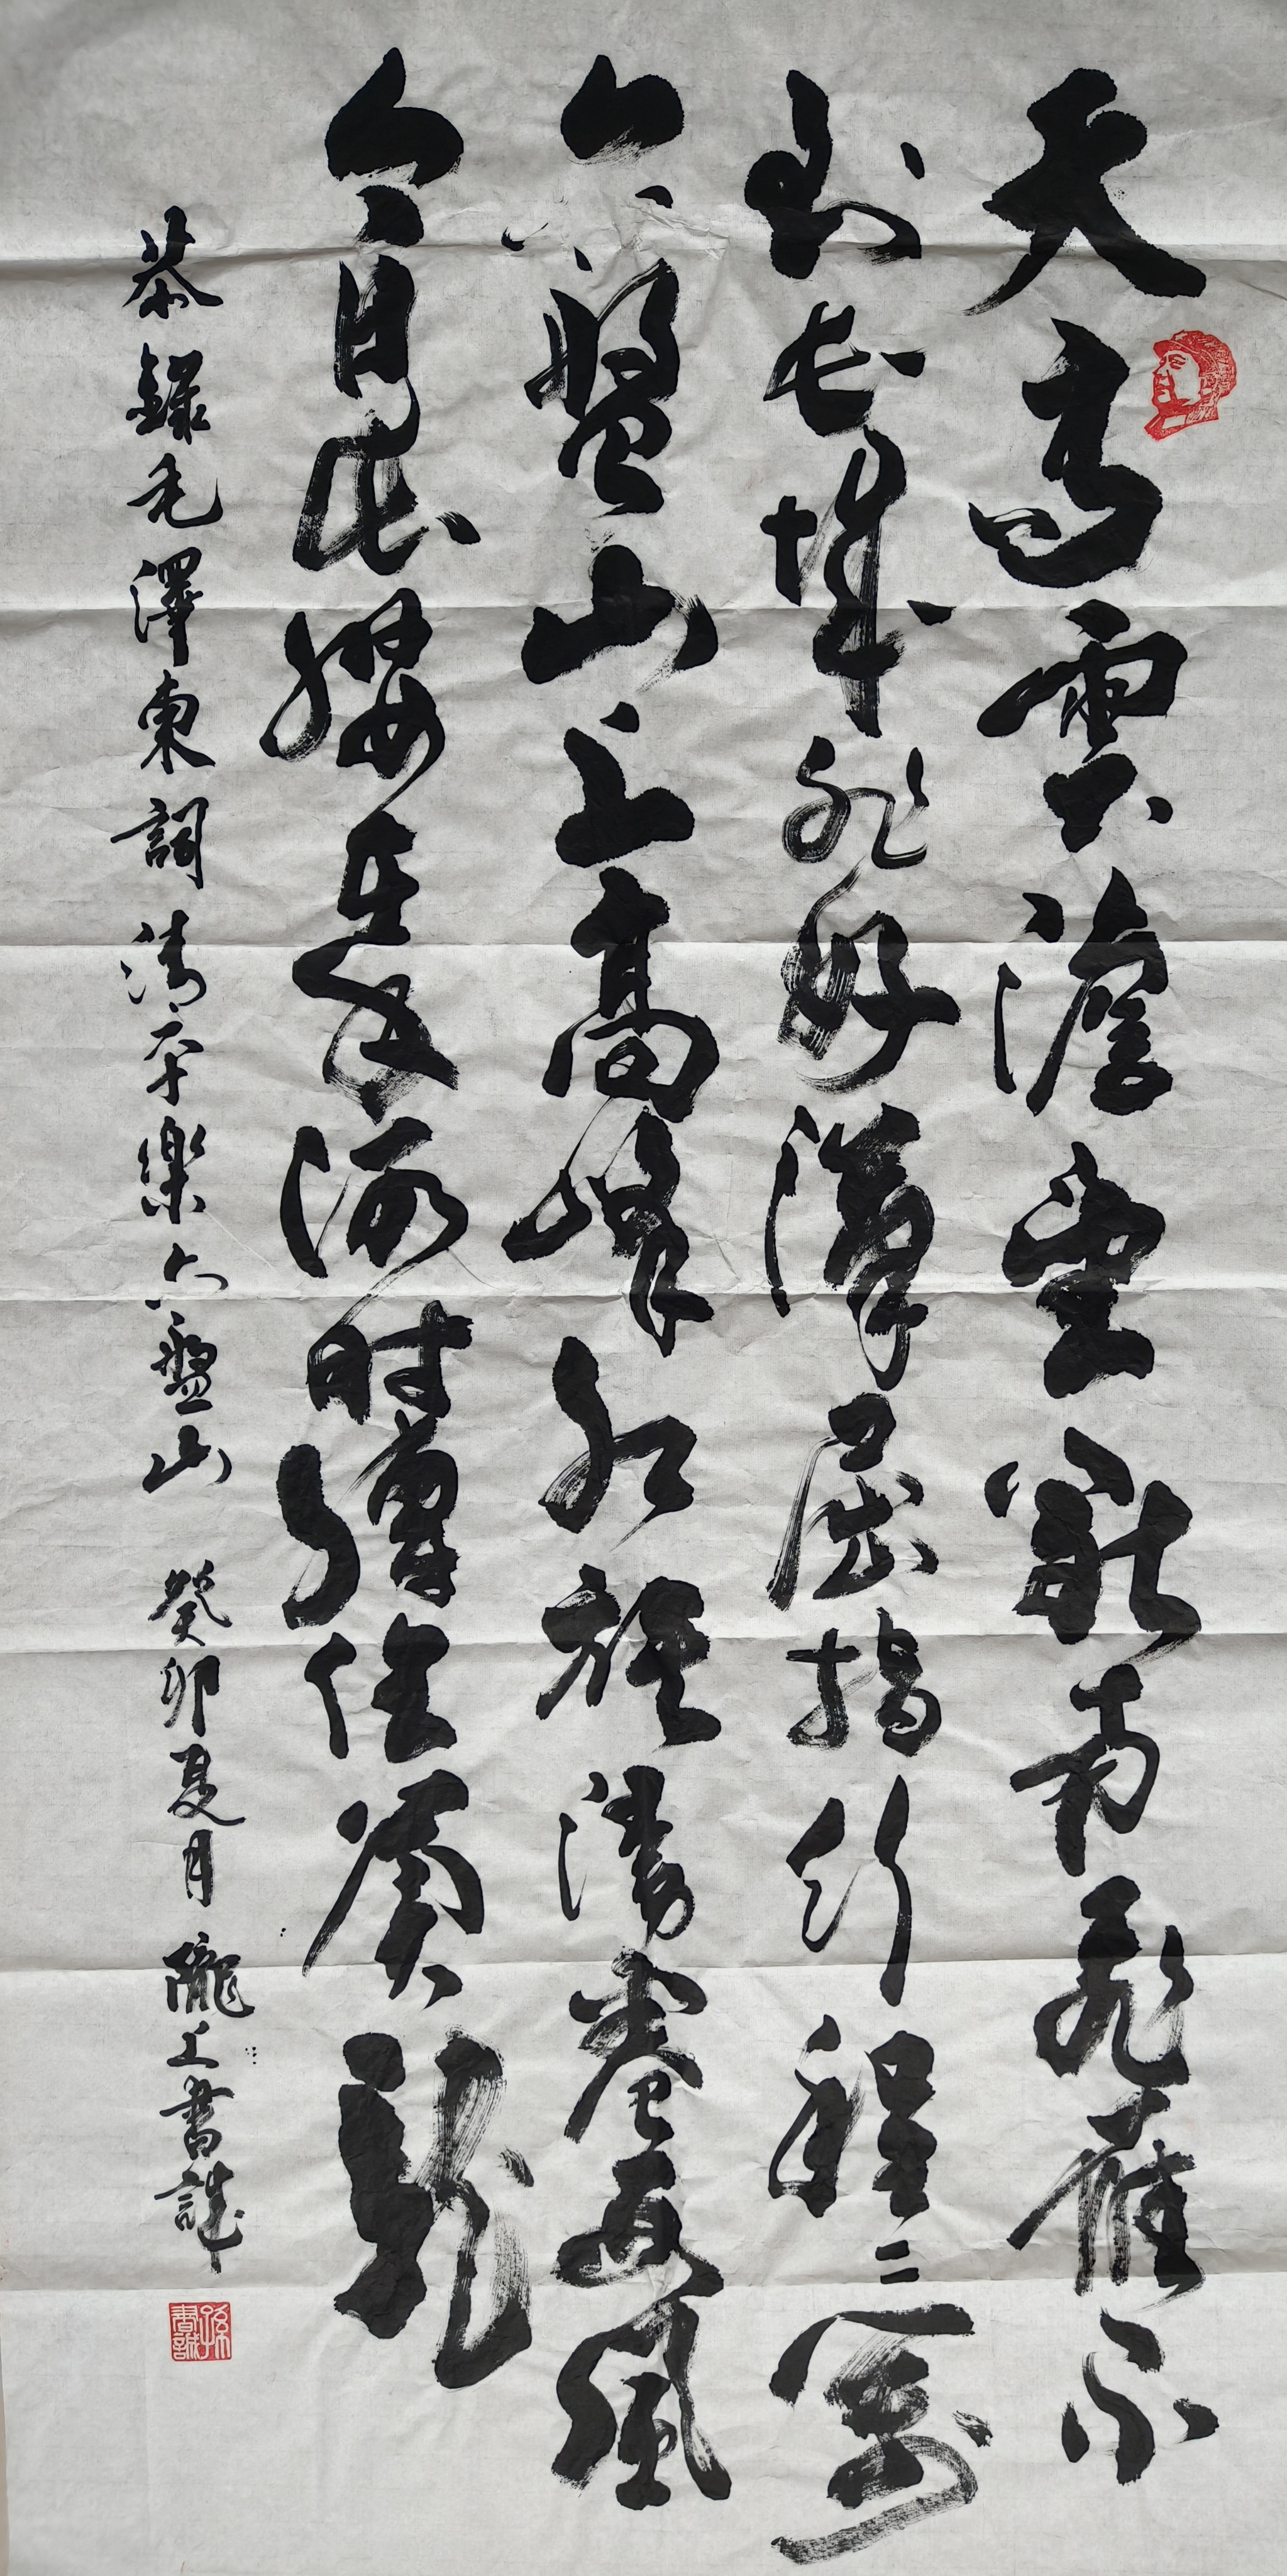 天高雲澹望斷南飛雁不
到長城非好漢屈指行程二萬
六盤山上高峰紅旗漫卷西風
今日長纓在手何时縛住蒼龍
恭錄毛澤東詞清平樂六盤山 癸卯夏月隴上書誠
孫書誠